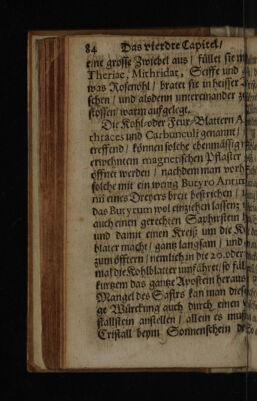 84 Das vierdte Capitel/
eine grosse Zwiebel aus/ füllet sie m
Theriac, Mithridat, Seiffe und
was Rosenöhl/ bratet sie in heisser
schen/ und alsdenn untereinander
stossen/ warm aufgelegt.
Die Kohl-oder Feur-Blattern A
thraces und Carbunculi genannt/
treffend/ können solche ebenmässig
erwehntem magnetischen Pflaster
öffnet werden/ nachdem man vorh
solche mit ein wenig Butyro Antim
nii eines Dreyers breit bestrichen/
das Butyrum wol einziehen lassen;
auch einen gerechten Saphirstein
und damit einen Kreiß um die Ko
blater macht/ gantz langsam/ und
zum öfftern/ nemlich in die 20. oder
mal die Kohlblatter umfähret/ so fäll
kurtzem das gantze Apostem heraus
Mangel des Safirs kan man diese
ge Würckung auch durch einen
stallstein anstellen/ allein es muß
Cristall beym Sonnenschein de